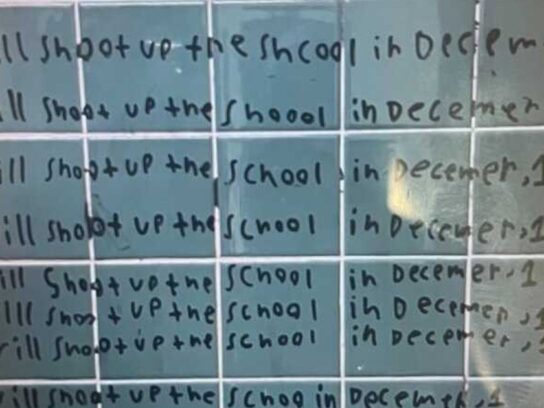 ill shoot up the Shcool in Decem
ill Shoot up the Shoool in Decemer
ill shoot up the School in Decemer, 1
ill shoot up the School in Decemer, 1
ill Shoot up the School in Decemer, 1
ill shoot up the School in Decemer, 1
rill shoot up the School in Decemer, 1
will shoot up the Schoo in Decemer, 1